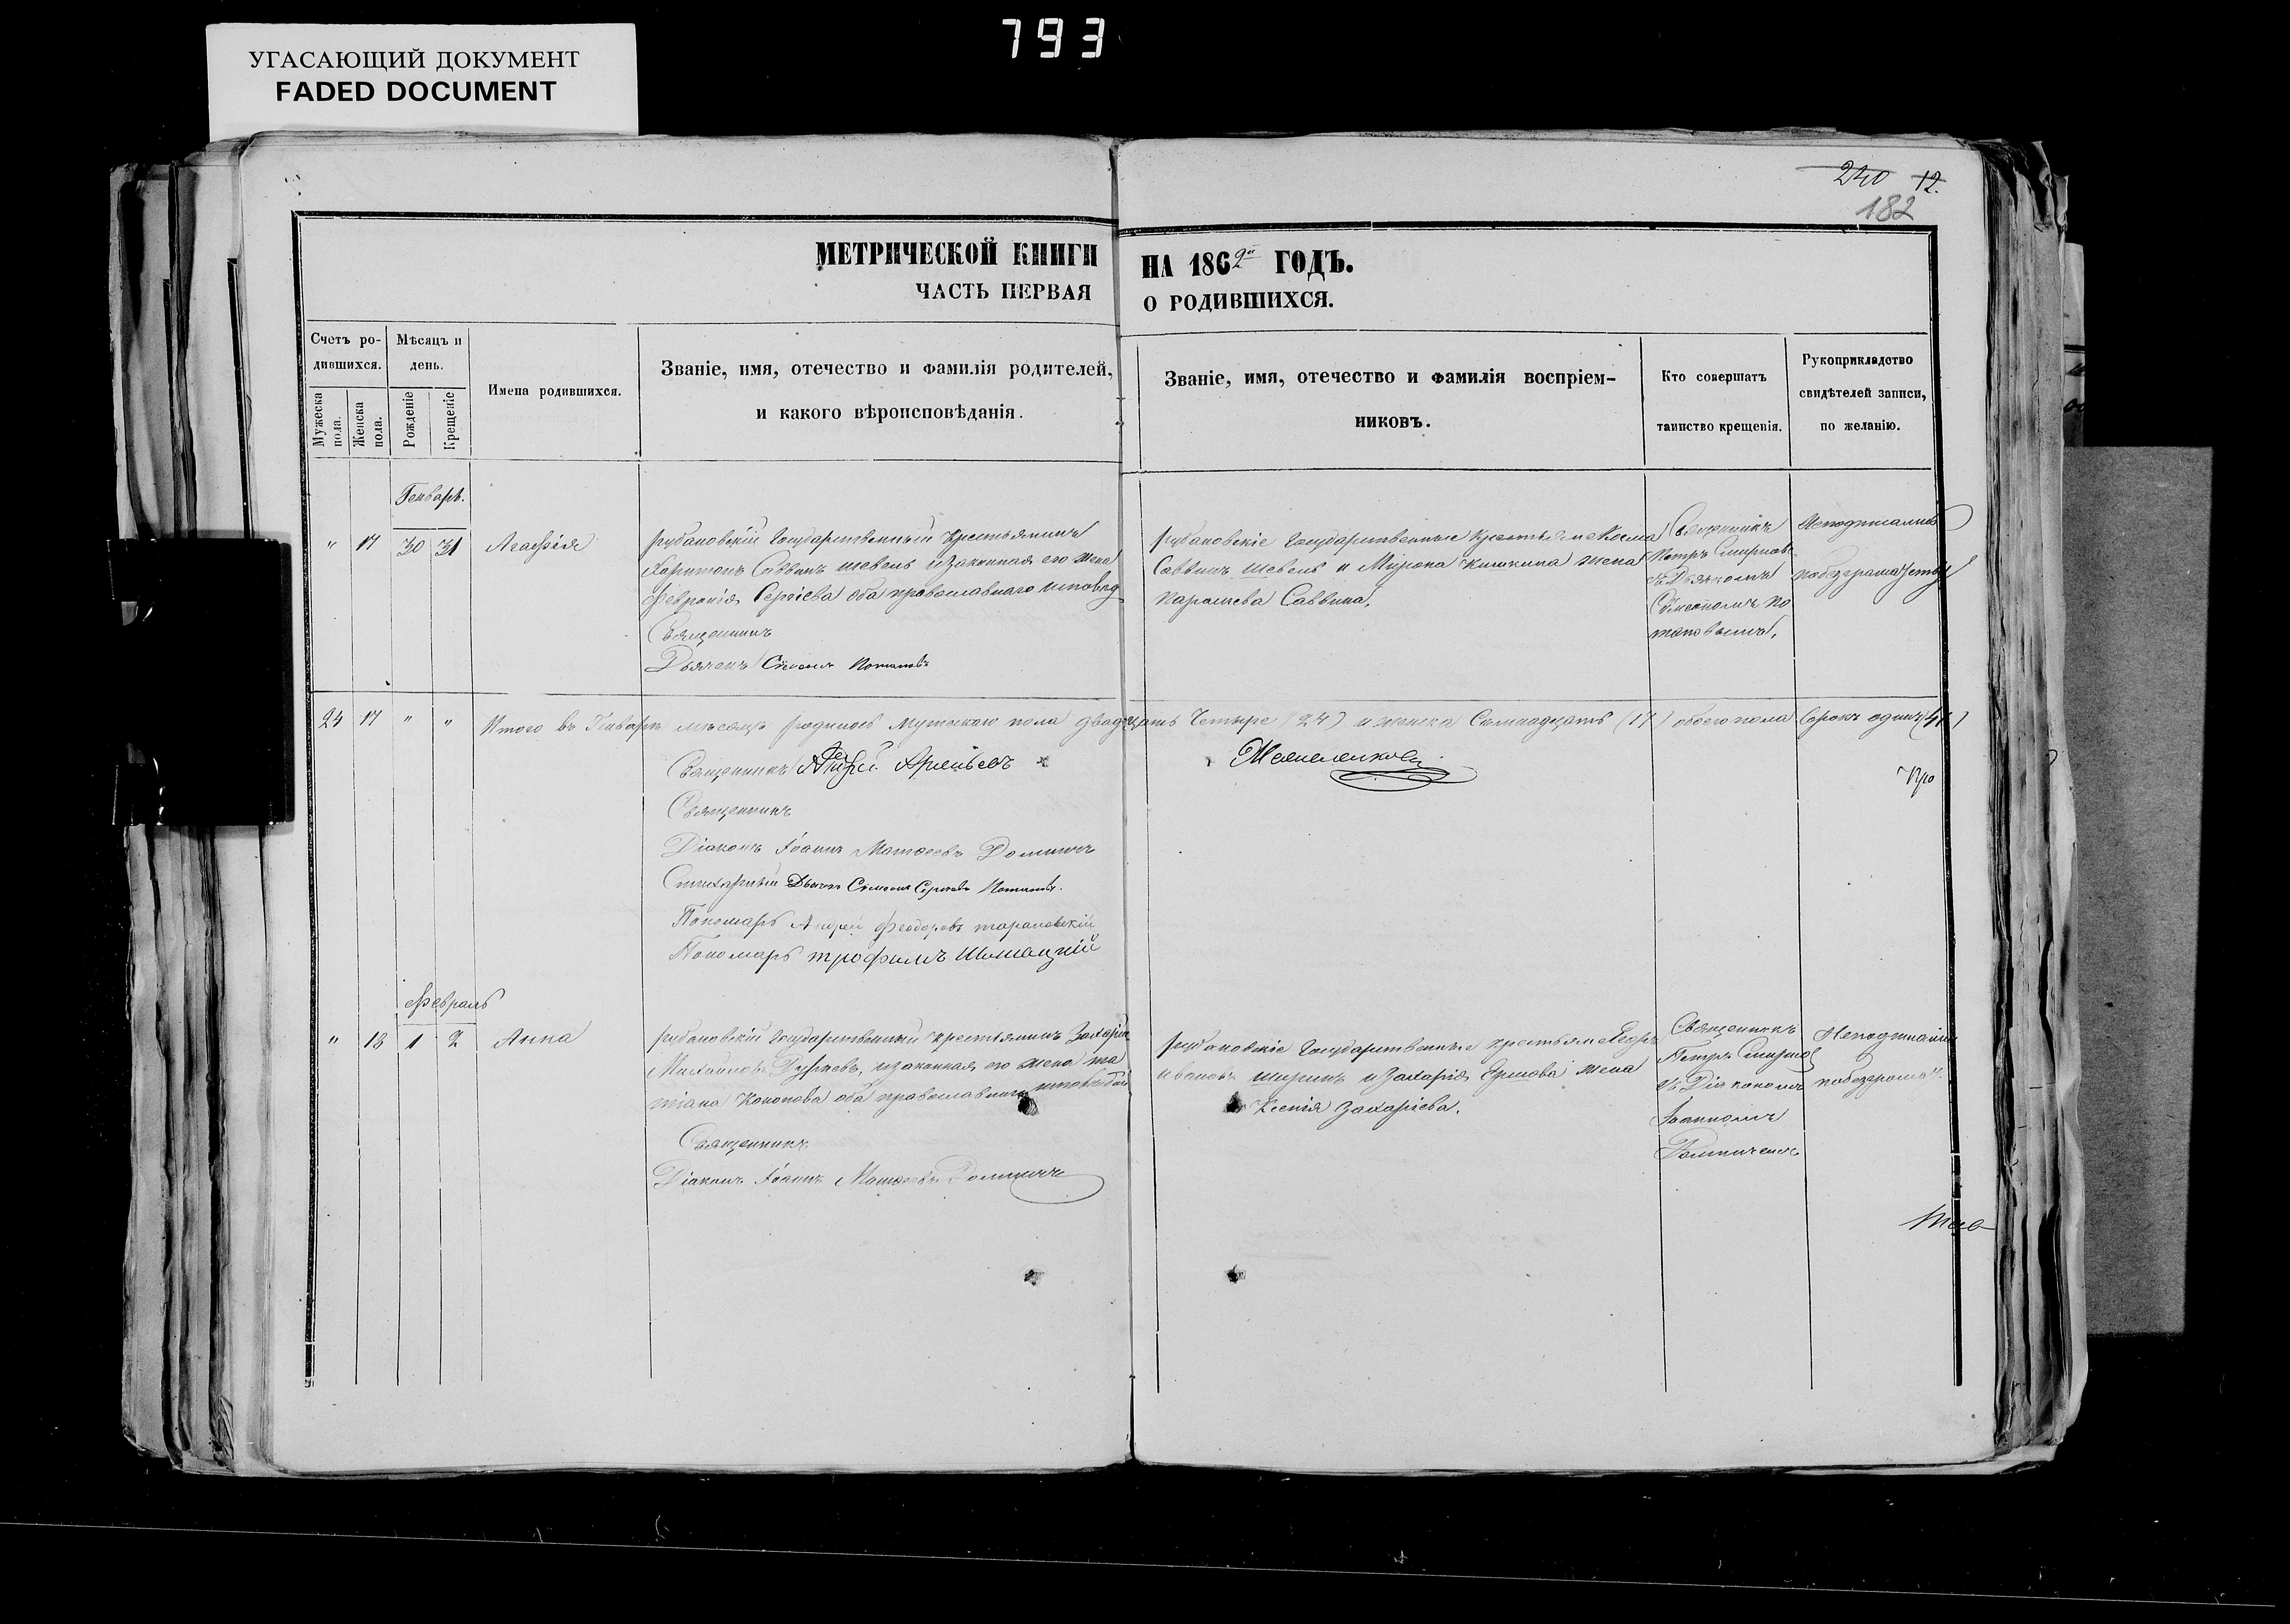 793
УГАСАЮЩИЙ ДОКУМЕНТ
FADED DOCUMENT
240 12.
182
МЕТРИЧЕСКОЙ КНИГИ НА 1862й ГОДЪ.
ЧАСТЬ ПЕРВАЯ О РОДИВШИХСЯ.
Счетъ родившихся.
Мужеска пола.
Женска пола.
Мѣсяцъ и день.
Рожденіе
Крещеніе
Имена родившихся.
Званіе, имя, отечество и фамилія родителей,
и какого вѣроисповѣданія.
Званіе, имя, отечество и фамилія воспріем-
никовъ.
Кто совершатъ
таинство крещенія.
Рукоприкладство
свидѣтелей записи,
по желанію.
Генварь.
" 17 30 31 Агафія
рубановскій Государственный Крестьянинъ
Харитонъ Саввинъ шевель изаконная его жена
Феврониія Сергіева оба православнаго исповѣд
Священникъ
Дьячекъ Симеонъ Потаповъ
рубановскіе Государственные Крестьяне Косма
Саввинъ шевель и Мирона Кишкина жена
Параскева Саввина,
Священникъ
Петръ Смирновъ
съ Дьячкомъ
Симеономъ По
таповымъ,
Неподписались
побезграмотству
24 17 " " Итого въ Генварѣ мѣсяцѣ родилось мужескаго пола двадцать Четыре (24) и женска Семнадцать (17) обоего пола Сорокъ одинъ (41)
Священникъ Андрей Арсеньевъ
Священникъ
Діаконъ Іоаннъ Матѳеевъ Доминичъ
Стихарный Дьячекъ Симеонъ Сергѣевъ Потаповъ.
Пономарь Андрей Феодоровъ тарановскій
Пономарь трофимъ Шишацкій
Про
Февраль
" 18 1 2 Анна
рубановскій Государственный крестьянинъ Захарія
Михайловъ изаконная его жена та
тіана Кононова оба православнаго исповѣданія
Священникъ
Діаконъ Іоаннъ Матѳеевъ Доминичъ
рубановскіе Государственные крестьяне Егоръ
ивановъ ширинъ и Захарія Ершова жена
Ксенія Захаріева.
Священникъ
Петръ Смирнов
съ Діакономъ
Іоанномъ
Доминичемъ
Неподписались
побезграмот.